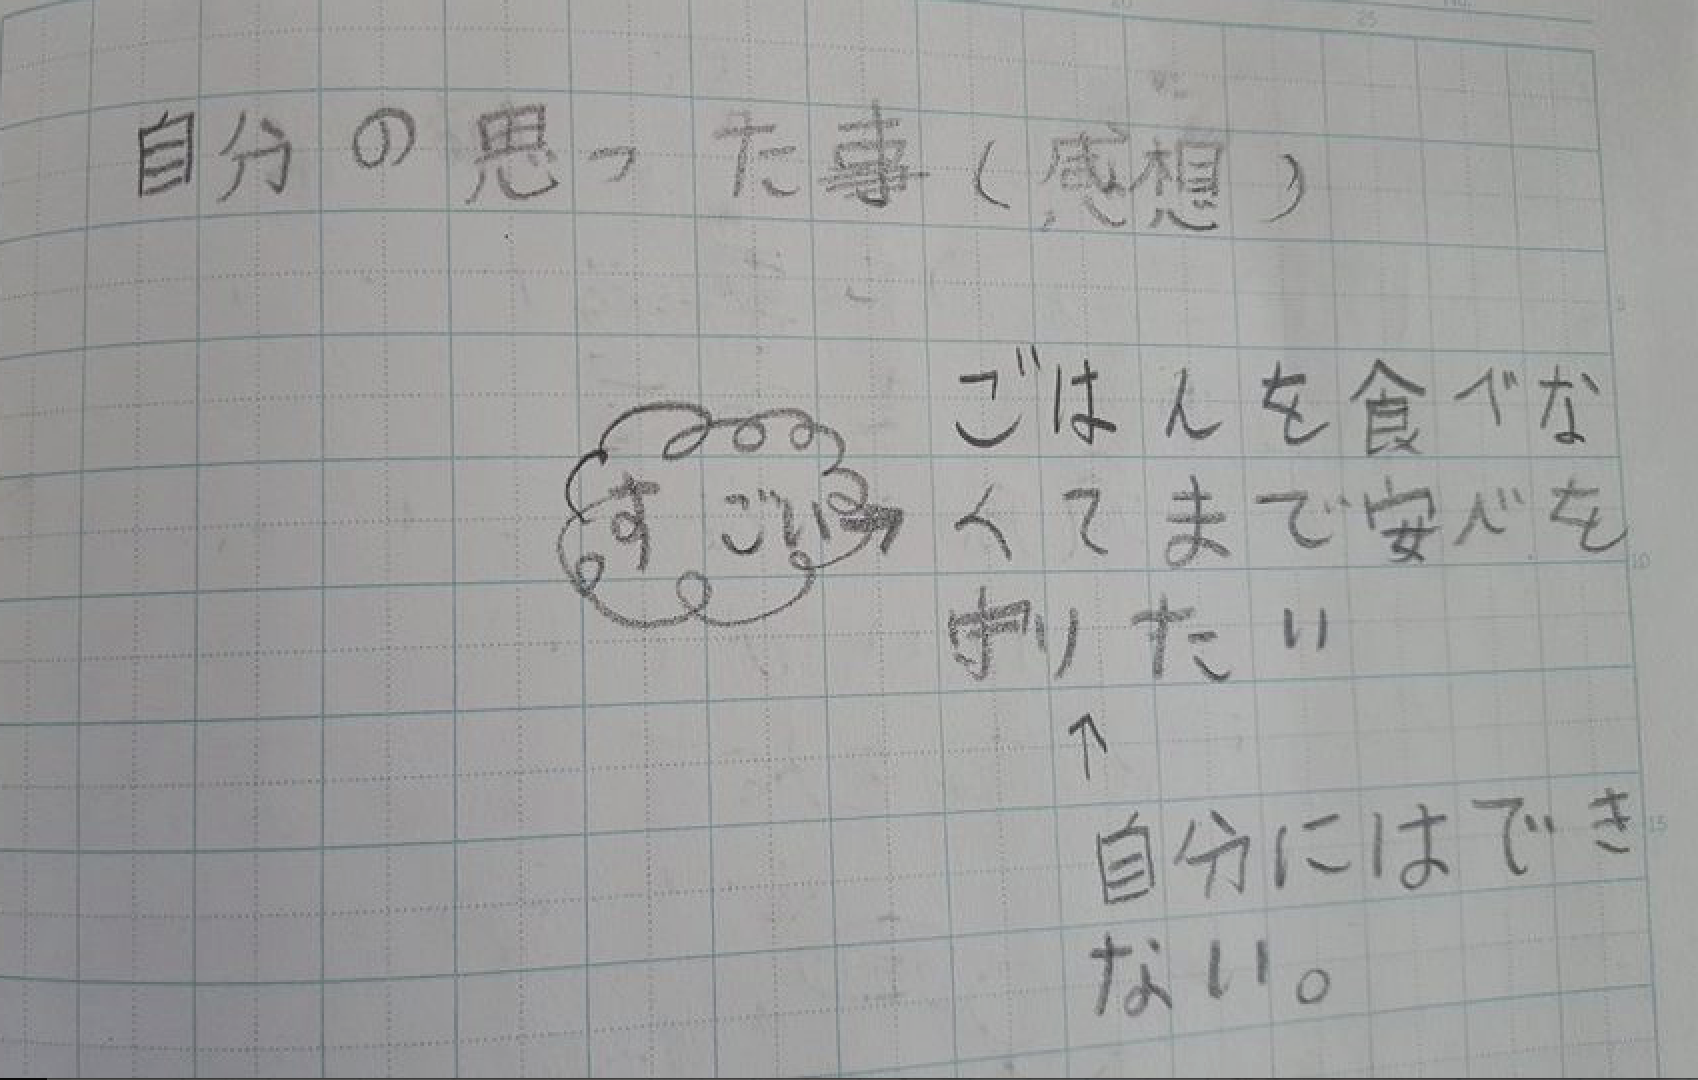 自分の思った事(感想)
ごはんを食べな
すごい→
くてまで安心を
守りたい
↑
自分にはでき
ない。